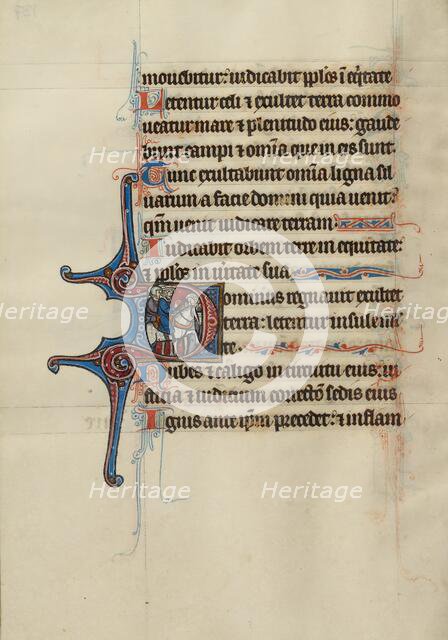 movebitur: iudicabit pplos i eqitate
Letentur celi & exultet terra commo
veatur mare & plenitudo eius: gaude
bunt campi & omia que in eis sunt.
Tunc exultabunt omia ligna sil
uarum a facie domini quia uenit:
qm uenit iudicare terram.
Iudicabit orbem terre in equitate:
& pplos in uitate sua
Dominus regnauit exultet
terra: letentur insule m
te.
Nubes & caligo in circuitu eius: iu
sticia & iudicium correctio sedis eius
Ignis ante ipm precedet: & inflam
Heritage Heritage Heritage
Heritage Heritage
Heritage Heritage Heritage